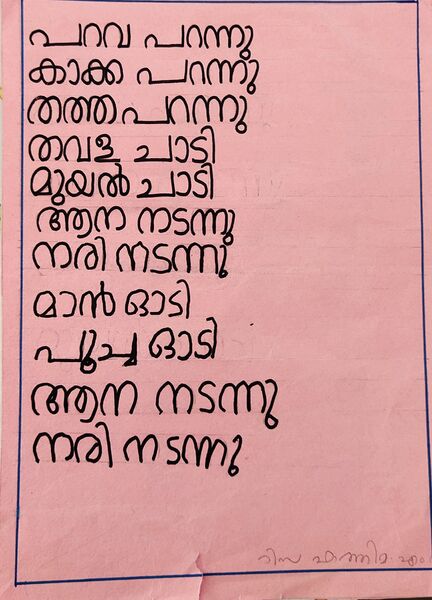 പറവ പറന്നു
കാക്ക പറന്നു
തത്ത പറന്നു
തവള ചാടി
മുയൽ ചാടി
ആന നടന്നു
നരി നടന്നു
മാൻ ഓടി
പൂച്ച ഓടി
ആന നടന്നു
നരി നടന്നു
ഫാത്തിമ